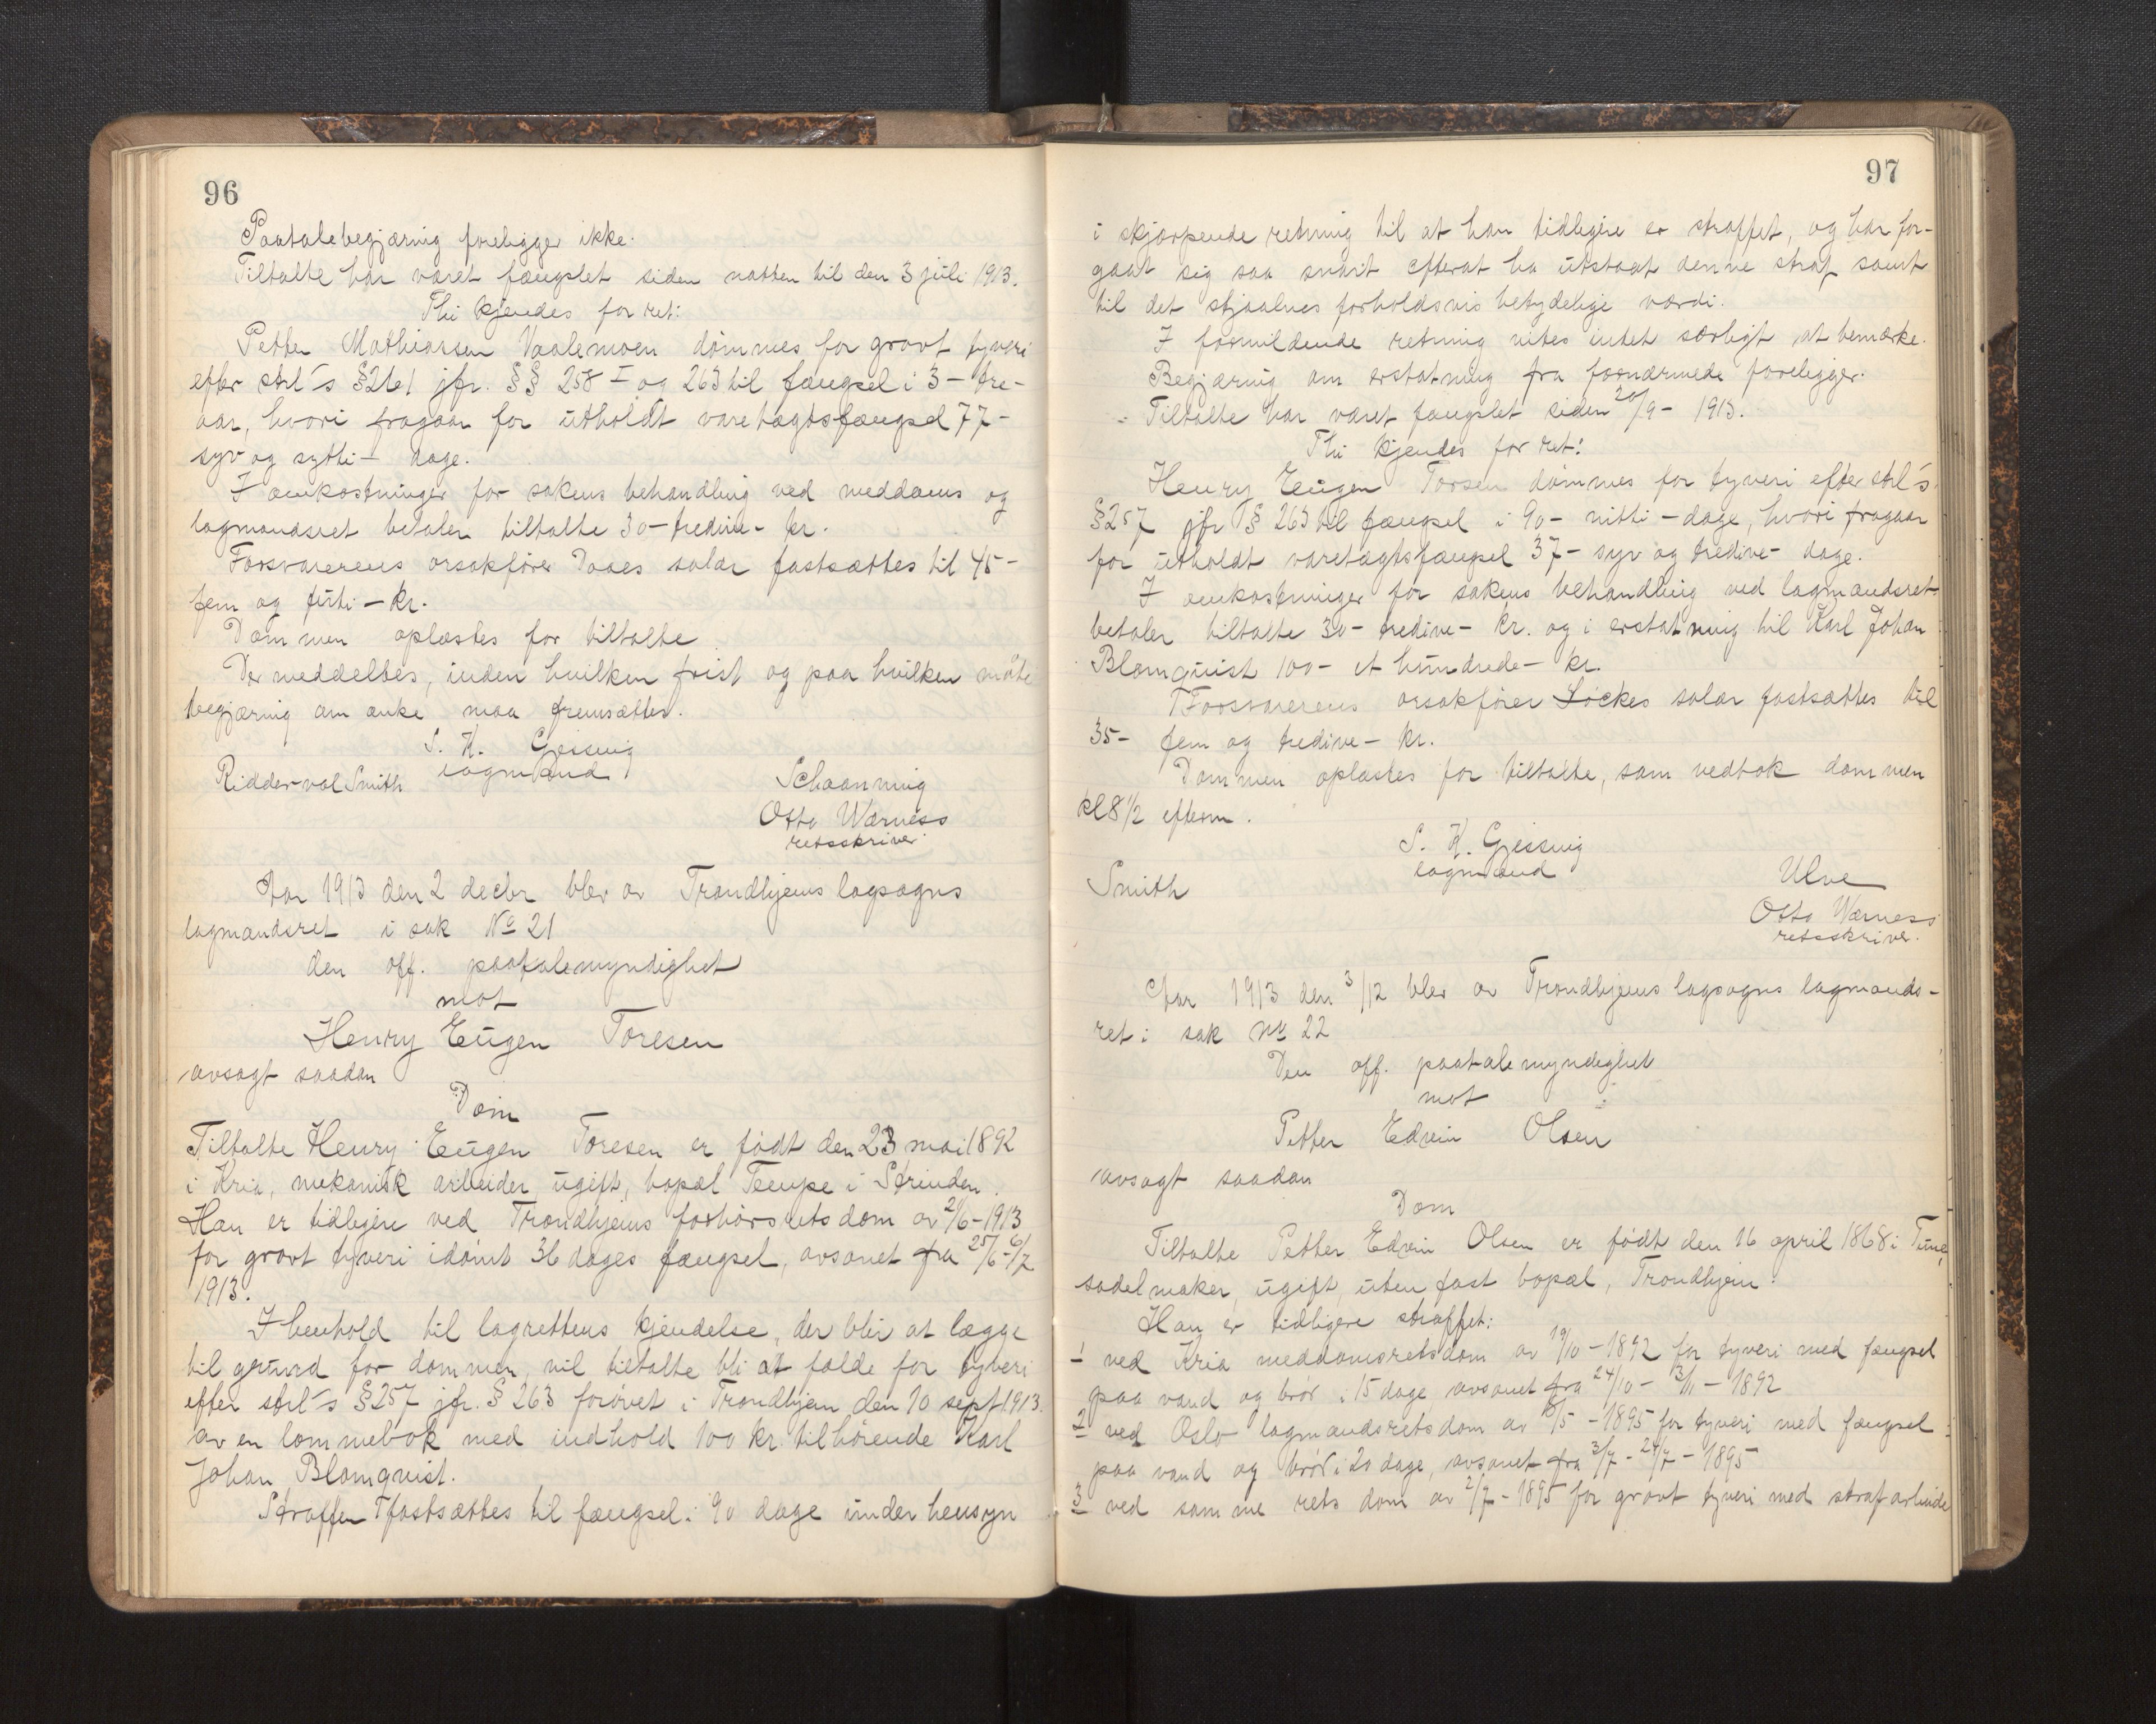 96
Paatalebegjæring foreligger ikke.
Tiltalte har været fængslet siden natten til den 3 juli 1913.
Thi kjendes for ret:
Petter Mathiassen Vaalemoen dømmes for grovt tyveri
efter strl's § 261 jfr. §§ 258 I og 263 til fængsel i 3 - tre -
aar, hvori fragaar for utholdt varetægtsfængsel 77 -
syv og sytti - dage.
I omkostninger for sakens behandling ved meddoms og
lagmandsret betaler tiltalte 30 - tredive - kr.
Forsvarerens orsakfører Daaes salær fastsættes til 45 -
fem og firti - kr.
Dommen oplæstes for tiltalte.
Der meddeltes, inden hvilken frist og paa hvilken måte
begjæring om anke maa fremsættes.
S. H. Gjessing
lagmand
Riddervol Smith
Schaanning
Otto Wærness
retsskriver.
Aar 1913 den 2 decbr blev av Trondhjems lagsogns
lagmandsret i sak No 21
den off. paatalemyndighet
mot
Henry Eugen Toresen
avsagt saadan
Dom
Tiltalte Henry Eugen Toresen er født den 23 mai 1892
i Kria, mekanisk arbeider, ugift, bopæl Tempe i Strinden.
Han er tidligere ved Trondhjems forhørsretsdom av 21/6 - 1913
for grovt tyveri idømt 36 dages fængsel, avsonet fra 25/6 - 6/7
1913.
I henhold til lagrettens kjendelse, der blir at lægge
til grund for dommen, vil tiltalte bli at fælde for tyveri
efter strl's § 257 jfr. § 263 forøvet i Trondhjem den 10 sept 1913.
av en lommebok med indhold 100 kr. tilhørende Karl
Johan Blomqvist.
Straffen fastsættes til fængsel i 90 dage under hensyn
97
i skjærpende retning til at han tidligere er straffet, og har for-
gaat sig saa snart efterat ha utstaat denne straf samt
til det stjaalnes forholdsvis betydelige værdi.
I formildende retning vites intet særligt at bemærke.
Begjæring om erstatning fra fornærmede foreligger.
Tiltalte har været fængslet siden 20/9 - 1913.
Thi kjendes for ret:
Henry Eugen Torsen dømmes for tyveri efter strl's
§ 257 jfr § 263 til fængsel i 90 - nitti - dage, hvori fragaar
for utholdt varetægtsfængsel 37 - syv og tredive - dage.
I omkostninger for sakens behandling ved lagmandsret
betaler tiltalte 30 - tredive - kr. og i erstatning til Karl Johan
Blomquist 100 - et hundrede - kr.
Forsvarerens orsakfører Löckes salær fastsættes til
35 - fem og tredive - kr.
Dommen oplæstes for tiltalte, som vedtok dommen
kl 8 1/2 efterm.
S. H. Gjessing
lagmand
Smith
Ulve
Otto Wærness
retsskriver.
Aar 1913 den 3/12 blev av Trondhjems lagsogns lagmands-
ret i sak No 22
Den off. paatalemyndighet
mot
Petter Edvin Olsen
avsagt saadan
Dom
Tiltalte Petter Edvin Olsen er født den 16 april 1868 i Tune,
sadelmaker, ugift, uten fast bopæl, Trondhjem.
Han er tidligere straffet:
1 ved Kria meddomsretsdom av 19/10 - 1892 for tyveri med fængsel
paa vand og brød i 15 dage, avsonet fra 24/10 - 3/11 - 1892
2 ved Oslo lagmandsretsdom av 18/5 - 1895 for tyveri med fængsel
paa vand og brød i 20 dage, avsonet fra 3/7 - 24/7 - 1895
3 ved samme rets dom av 2/7 - 1895 for grovt tyveri med strafarbeide